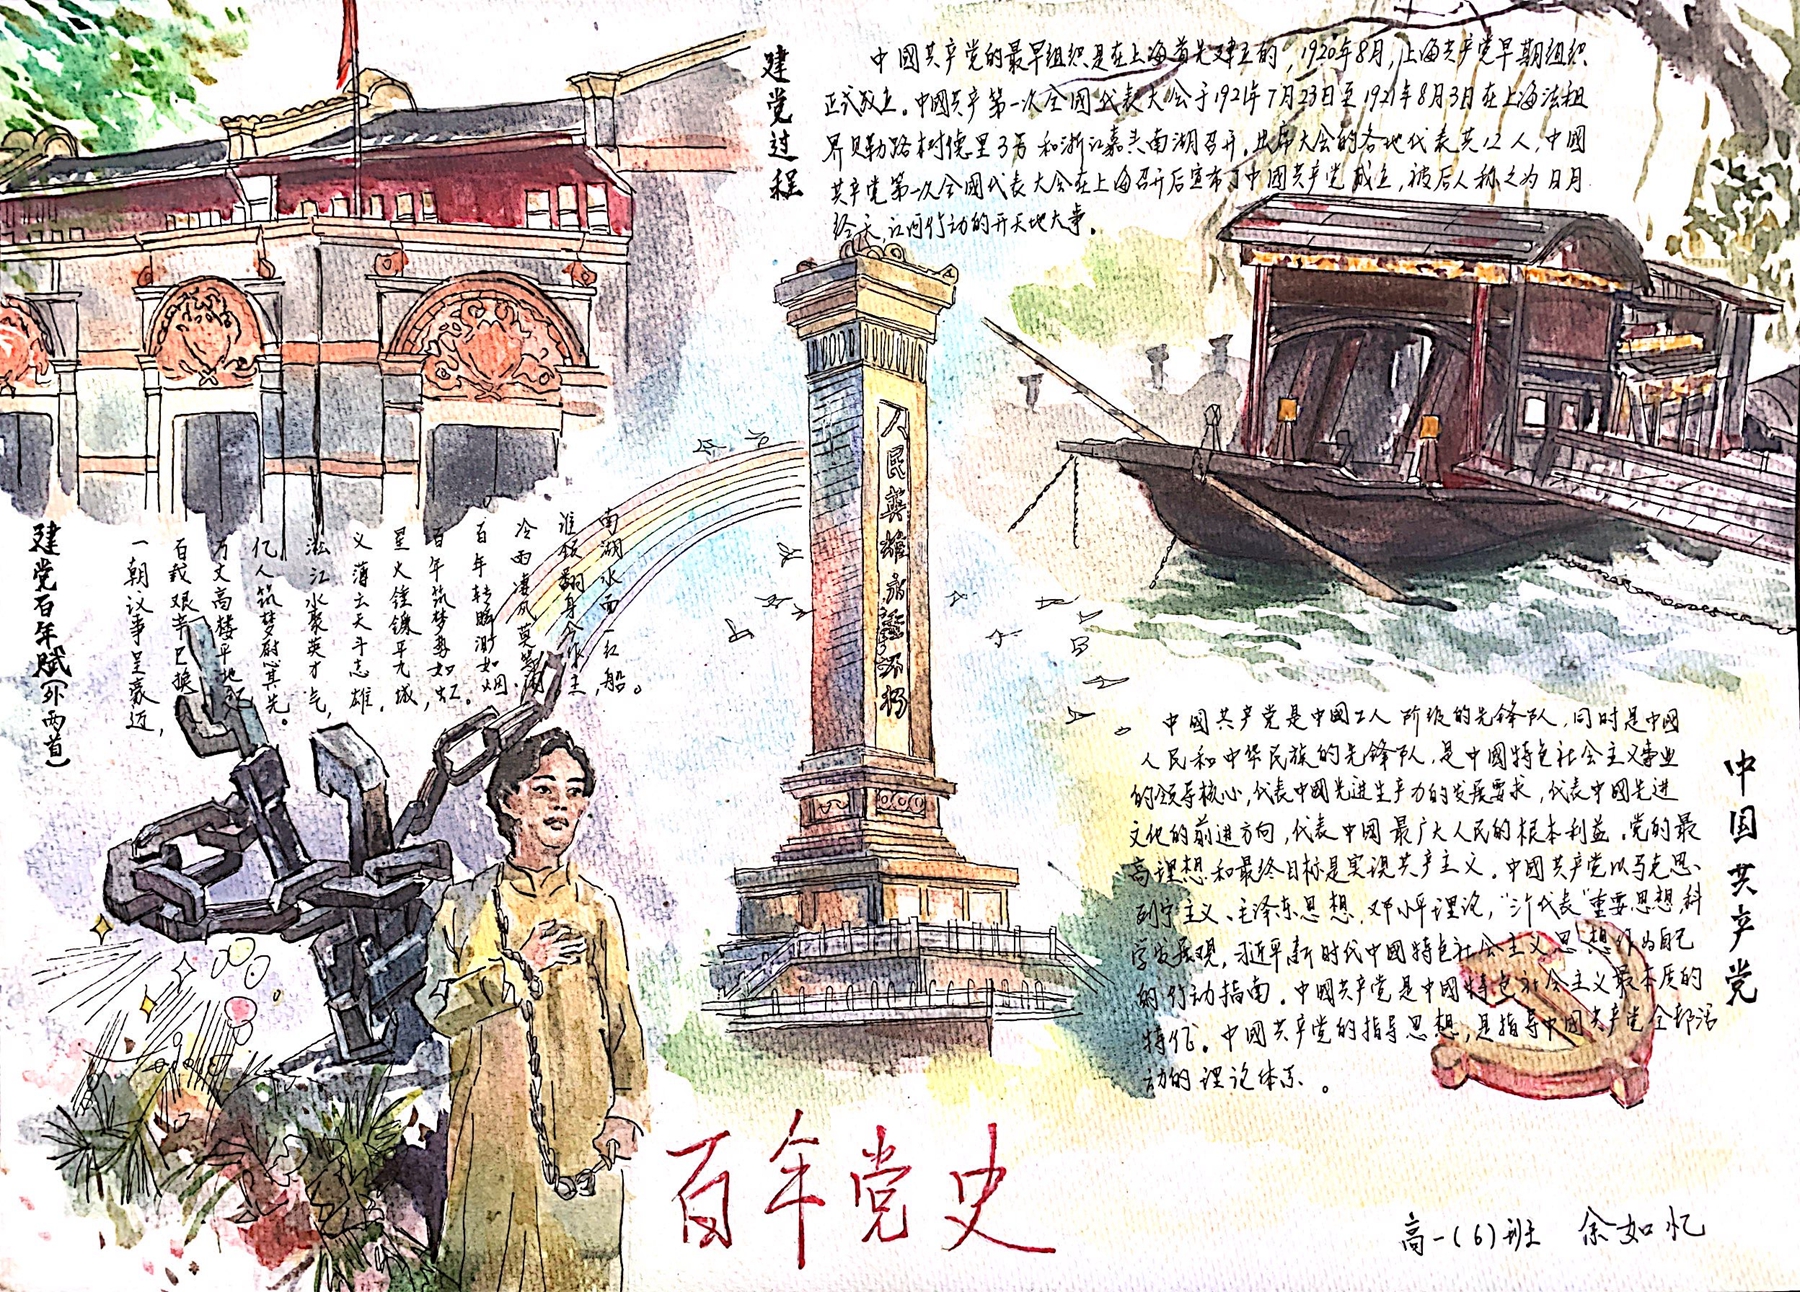 建党过程
中國共产党的最早组织是在上海首先建立的，1920年8月，上海共产党早期组织
正式成立。中國共产第一次全国代表大会于1921年7月23日至1921年8月3日在上海法租
界贝勒路树德里3号和浙江嘉兴南湖召开。出席大会的各地代表共12人，中國
共产党第一次全國代表大会在上海召开后宣布了中國共产党成立，被后人称之为日月
经天，江河行动的开天地大事。
建党百年赋（外两首）
一朝议事呈豪迈，
百载艰辛已换
万丈高楼平地起
亿人筑梦慰其先。
江水聚英才气，
义薄云天斗志雄，
星火锤镰平九域，
百年筑梦勇如虹。
百年转瞬渺如烟，
冷雨凄风莫等闲，
谁领翻身今主，
南湖水面一红船。
人民英雄永垂不朽
中国共产党
中國共产党是中國工人阶级的先锋队，同时是中國
人民和中华民族的先锋队，是中國特色社会主义事业
的领导核心，代表中國先进生产力的发展要求，代表中國先进
文化的前进方向，代表中國最广大人民的根本利益。党的最
高理想和最终目标是实现共产主义。中國共产党以马克思、
列宁主义、毛泽东思想、邓小平理论，“三个代表”重要思想、科
学发展观，习近平新时代中國特色社会主义思想作为自己
的行动指南。中國共产党是中國特色社会主义最本质的
特征。中國共产党的指导思想，是指导中國共产党全部活
动的理论体系。
百年党史
高一（6）班 余如忆